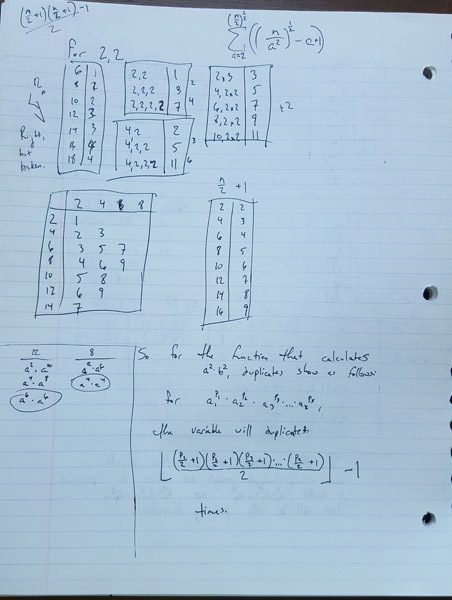 (n/2+1)(n/2+1)-1
2
for 2,2
6 | 1
8 | 2
10 | 2
12 | 3
14 | 3
16 | 4
18 | 4
Right,
but
broken.
2,2 | 1
2,2,2 | 3
2,2,2,2 | 7
2
4
4,2 | 2
4,2,2 | 5
4,2,2,2 | 11
3
6
2×3 | 3
4,2×2 | 5
6,2×2 | 7
8,2×2 | 9
10,2×2 | 11
+2
2 4 6 8
2 | 1
4 | 2 3
6 | 3 5 7
8 | 4 6 9
10 | 5 8
12 | 6 9
14 | 7
n/2 + 1
2 | 2
4 | 3
6 | 4
8 | 5
10 | 6
12 | 7
14 | 8
16 | 9
12
a²·a¹⁰
a⁴·a⁸
a⁶·a⁶
8
a²·a⁶
a⁴·a⁴
So for the function that calculates
a²·b², duplicates show as follows:
for
the variable will duplicate:
⌊ (p₁/2+1)(p₂/2+1)(p₃/2+1)...(pₓ/2+1) / 2 ⌋ -1
times.